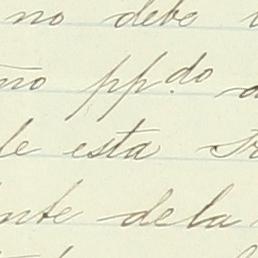 no debo
no pp.do
de esta
nte de la